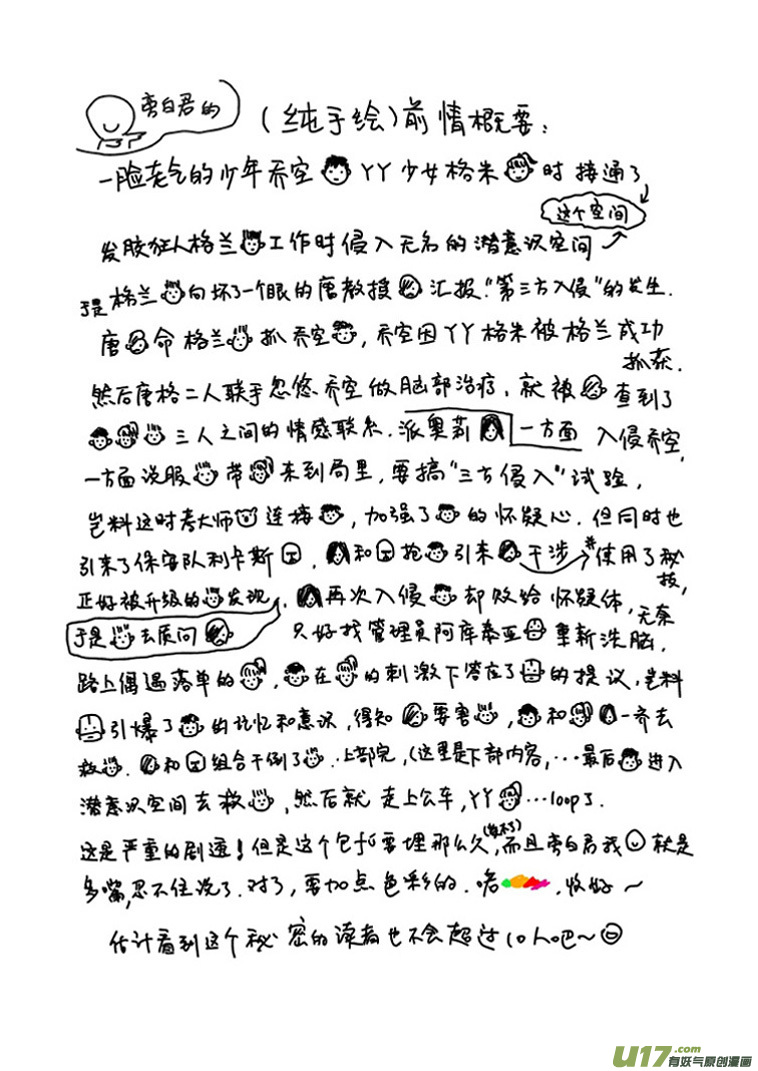 旁白君的
(纯手绘)前情概要:
一脸老气的少年乔空 YY少女格朱 时接通了
这个空间
发胶狂人格兰 工作时侵入无名的潜意识空间
于是格兰 向坏了一个眼的唐教授 汇报"第三方入侵"的发生.
唐 命格兰 抓乔空 , 乔空因YY格朱被格兰成功
抓获.
然后唐格二人联手忽悠乔空做脑部治疗, 就被 查到了
三人之间的情感联系. 派奥莉 一方面 入侵乔空,
一方面说服 带 来到局里, 要搞"三方侵入"试验,
岂料这时考大师 连接 , 加强了 的怀疑心. 但同时也
引来了保安队利卡斯 , 和 抱 引来 干涉 使用了秘
技,
正好被升级的 发现, 再次入侵 却败给怀疑体, 无奈
于是 去质问 只好找管理员阿库泰亚 重新洗脑.
路上偶遇落单的 , 在 的刺激下答应了 的提议, 岂料
引爆了 的记忆和意识, 得知 要害 , 和 一齐去
救 . 和 组合干倒了 . 上部完, (这里是下部内容, ...最后 进入
潜意识空间去救 , 然后就走上公车, YY ...loop了.
这是严重的剧透! 但是这个包袱要埋那么久, 而且旁白君我 就是
多嘴, 忍不住说了. 对了, 要加点色彩的. 喏 . 收好~
估计看到这个秘密的读者也不会超过10人吧~
U17.com
有妖气原创漫画